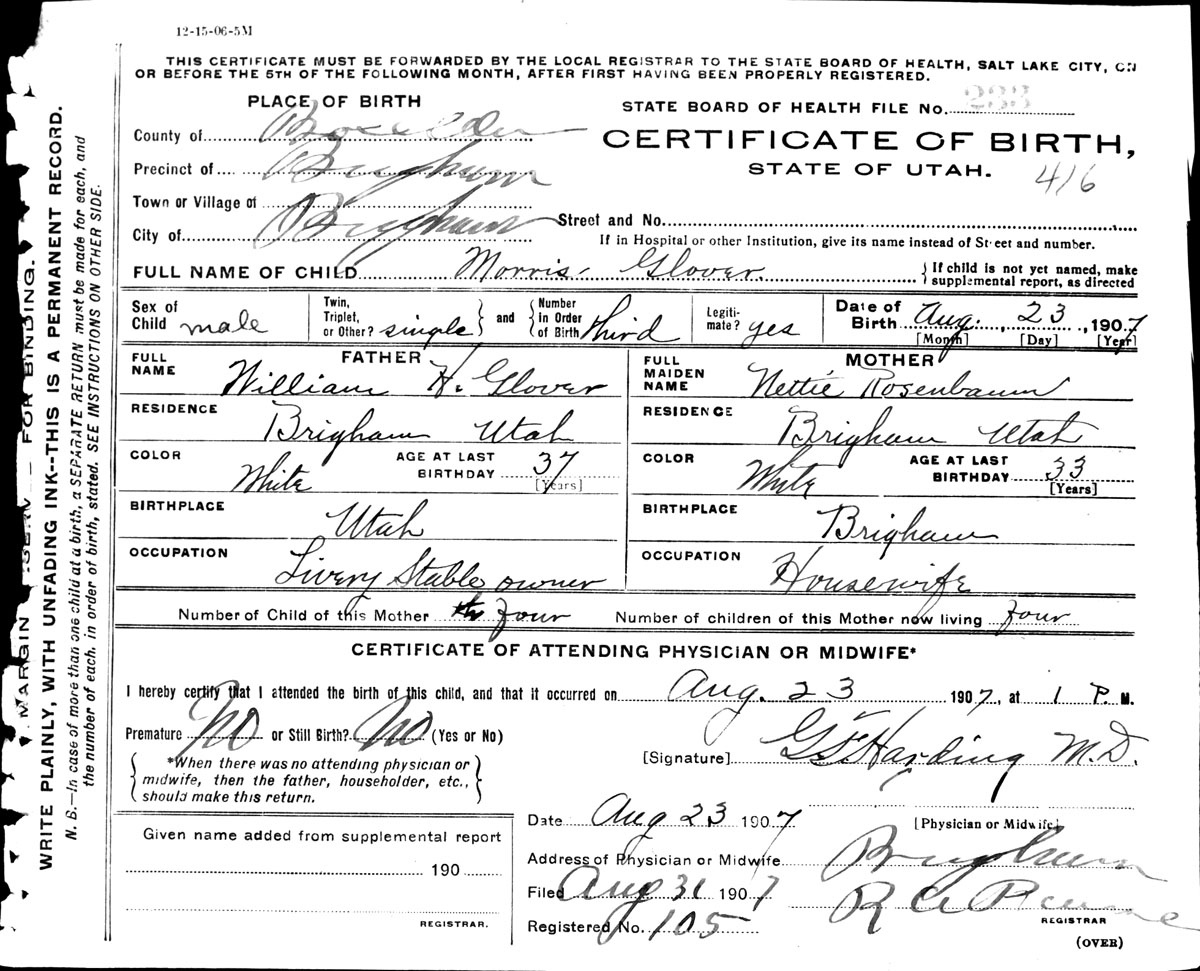 12-15-06-5M
THIS CERTIFICATE MUST BE FORWARDED BY THE LOCAL REGISTRAR TO THE STATE BOARD OF HEALTH, SALT LAKE CITY, ON
OR BEFORE THE 5TH OF THE FOLLOWING MONTH, AFTER FIRST HAVING BEEN PROPERLY REGISTERED.
PLACE OF BIRTH
STATE BOARD OF HEALTH FILE No. 233
County of Box Elder
CERTIFICATE OF BIRTH,
Precinct of Brigham
STATE OF UTAH.
416
Town or Village of
City of Brigham
Street and No.
If in Hospital or other Institution, give its name instead of Street and number.
FULL NAME OF CHILD Morris Glover { If child is not yet named, make
supplemental report, as directed
Sex of Child male
Twin, Triplet, or Other? single } and { Number in Order of Birth third
Legiti-mate? yes
Date of Birth Aug. 23, 1907
[Month] [Day] [Year]
FATHER
FULL NAME William H. Glover
RESIDENCE Brigham Utah
COLOR White AGE AT LAST BIRTHDAY 37
[Years]
BIRTHPLACE Utah
OCCUPATION Livery Stable owner
MOTHER
FULL MAIDEN NAME Nettie Rosenbaum
RESIDENCE Brigham Utah
COLOR White AGE AT LAST BIRTHDAY 33
[Years]
BIRTHPLACE Brigham
OCCUPATION Housewife
Number of Child of this Mother four Number of children of this Mother now living four
CERTIFICATE OF ATTENDING PHYSICIAN OR MIDWIFE*
I hereby certify that I attended the birth of this child, and that it occurred on Aug. 23 1907, at 1 P. M.
Premature No or Still Birth? No (Yes or No)
[Signature] Harding M.D.
*When there was no attending physician or
midwife, then the father, householder, etc.,
should make this return.
Given name added from supplemental report
190
REGISTRAR.
Date Aug 23 1907
[Physician or Midwife]
Address of Physician or Midwife Brigham
Filed Aug 31 1907
REGISTRAR
Registered No. 105
(OVER)
MARGIN FOR BINDING.
WRITE PLAINLY, WITH UNFADING INK--THIS IS A PERMANENT RECORD.
N. B.—In case of more than one child at a birth, a SEPARATE RETURN must be made for each, and
the number of each, in order of birth, stated. SEE INSTRUCTIONS ON OTHER SIDE.